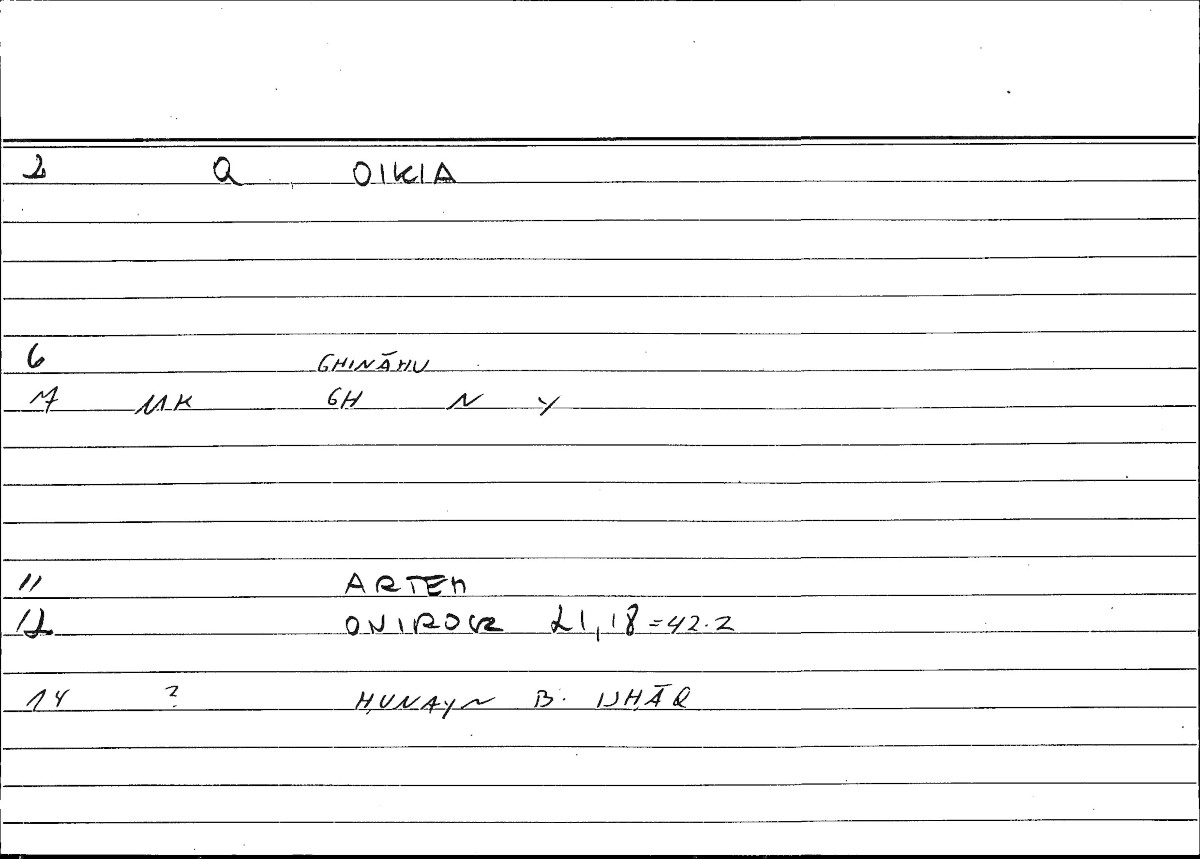 2 Q OIKIA
6 GHINĀHU
7 MK GH N Y
11 ARTEM
12 ONIROCR 21,18=42.2
14 ? ḤUNAYN B. ISḤĀQ